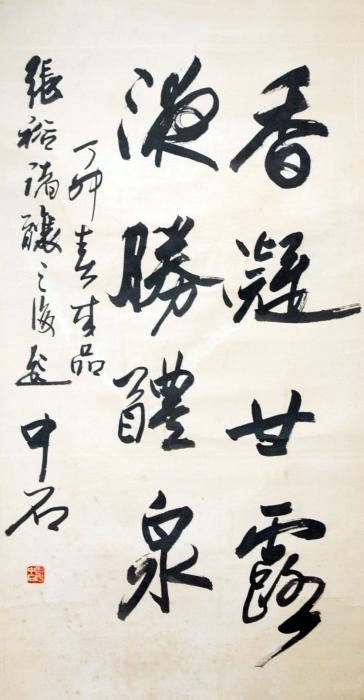 香凝甘露
液勝醴泉
丁卯春来品
張裕諸釀之後題
中石